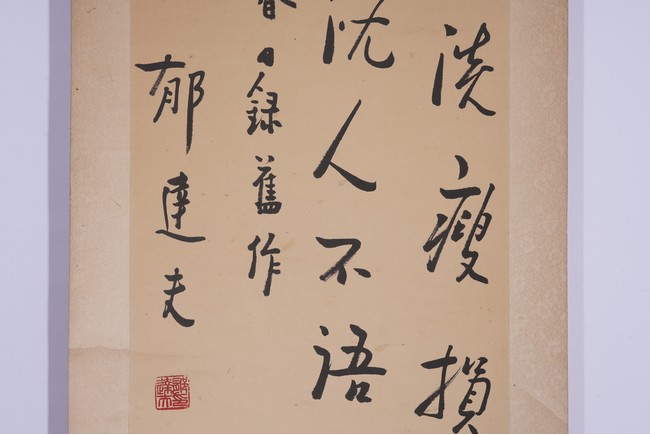 淡瘦損
沈人不語
春日錄舊作
郁達夫